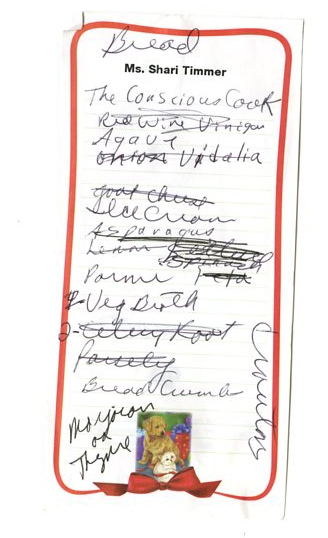 Bread
Ms. Shari Timmer
The Conscious Cook
Red Wine Vinigar
Agave
onion Vidalia
goat cheese
Ice Cream
Asparagus
Lemon
Spinach
Parme Feta
Veg Broth
2- Celery Root
Parsely
Bread Crumb
Marjoram
od
Thyme